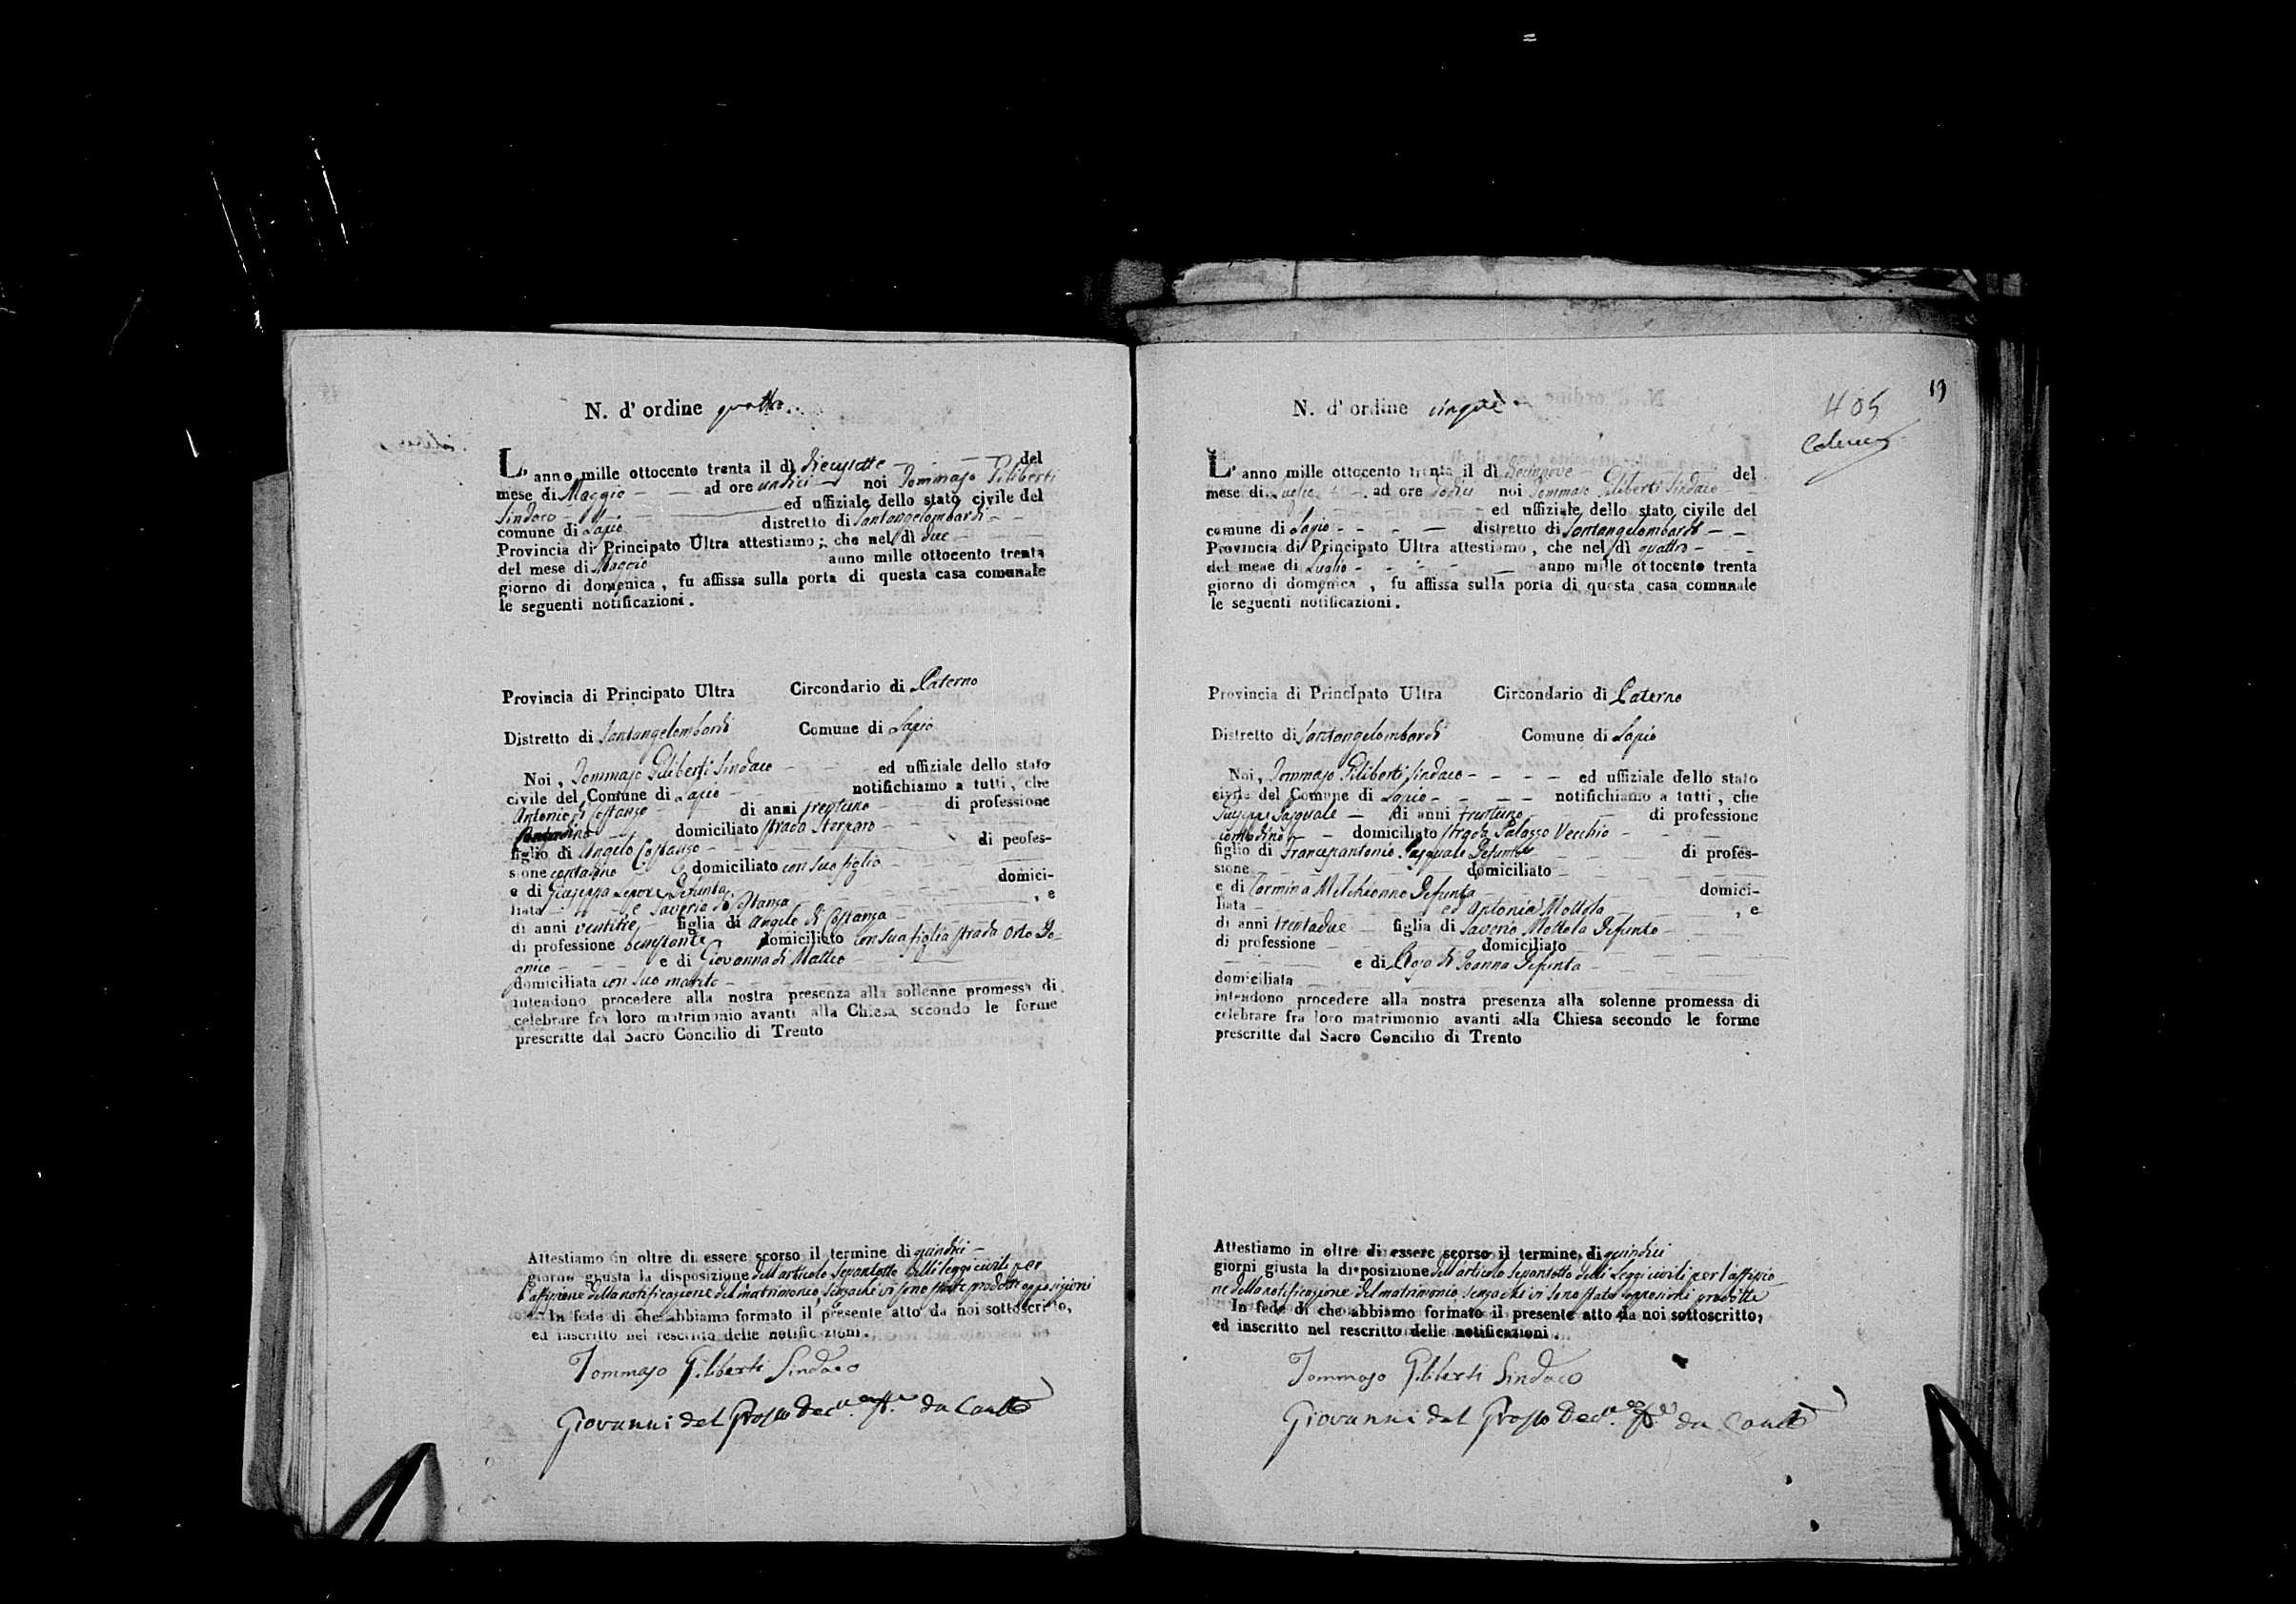 N. d' ordine quattro.
L' anno mille ottocento trenta il dì diecisette del
mese di Maggio ad ore undici noi Tommaso Filiberti
Sindaco ed uffiziale dello stato civile del
comune di Lapio distretto di Santangelombardi
Provincia di Principato Ultra attestiamo; che nel dì due
del mese di Maggio anno mille ottocento trenta
giorno di domenica, fu affissa sulla porta di questa casa comunale
le seguenti notificazioni.
Provincia di Principato Ultra Circondario di Paterno
Distretto di Santangelombardi Comune di Lapio
Noi, Tommaso Filiberti Sindaco ed uffiziale dello stato
civile del Comune di Lapio notifichiamo a tutti, che
Antonio di Costanzo di anni trentuno di professione
domiciliato strada
figlio di Angelo Costanzo di peofes-
sione contadino domiciliato con suo figlio
e di Giuseppa Lepore Defunta domici-
liata e Saveria di Costanza, e
di anni ventitre figlia di Angelo di Costanza
di professione benestante domiciliato con sua figlia strada Orto
e di Giovanna di Matteo
domiciliata con suo marito
intendono procedere alla nostra presenza alla sollenne promessa di
celebrare fra loro matrimonio avanti alla Chiesa secondo le forme
prescritte dal Sacro Concilio di Trento
Attestiamo in oltre di essere scorso il termine di quindici
giorno giusta la disposizione dell'articolo sessantotto delli leggi civili per
l'affissione della notificazione del matrimonio, senzache vi sono state prodotte opposizioni
In fede di che abbiamo formato il presente atto da noi sottoscritto,
ed inscritto nel rescritto delle notificazioni.
Tommaso Filiberti Sindaco
Giovanni del Grosso
N. d' ordine cinque
19
405
L' anno mille ottocento trenta il dì decinnove del
mese di Luglio ad ore dodici noi Tommaso Filiberti Sindaco
ed uffiziale dello stato civile del
comune di Lapio distretto di Santangelombardi
Provincia di Principato Ultra attestiamo, che nel dì quattro
del mese di Luglio anno mille ottocento trenta
giorno di domenica, fu affissa sulla porta di questa casa comunale
le seguenti notificazioni.
Provincia di Principato Ultra Circondario di Paterno
Distretto di Santangelombardi Comune di Lapio
Noi, Tommaso Filiberti Sindaco ed uffiziale dello stato
civile del Comune di Lapio notifichiamo a tutti, che
Giuseppe Pasquale di anni trentuno di professione
contadino domiciliato strada Palazzo Vecchio
figlio di Francescantonio Pasquale Defunto di profes-
sione domiciliato
e di Carmina Melchionno Defunta domici-
liata ed Antonia Mottola, e
di anni trentadue figlia di Saverio Mottola Defunto
di professione domiciliato
e di Rosa di Joanna Defunta
domiciliata
intendono procedere alla nostra presenza alla solenne promessa di
celebrare fra loro matrimonio avanti alla Chiesa secondo le forme
prescritte dal Sacro Concilio di Trento
Attestiamo in oltre di essere scorso il termine di quindici
giorni giusta la disposizione dell'articolo sessantotto delli Leggi civili per l'affissio
ne della notificazione del matrimonio senzache vi sono state opposizioni prodotte
In fede di che abbiamo formato il presente atto da noi sottoscritto,
ed inscritto nel rescritto delle notificazioni.
Tommaso Filiberti Sindaco
Giovanni del Grosso